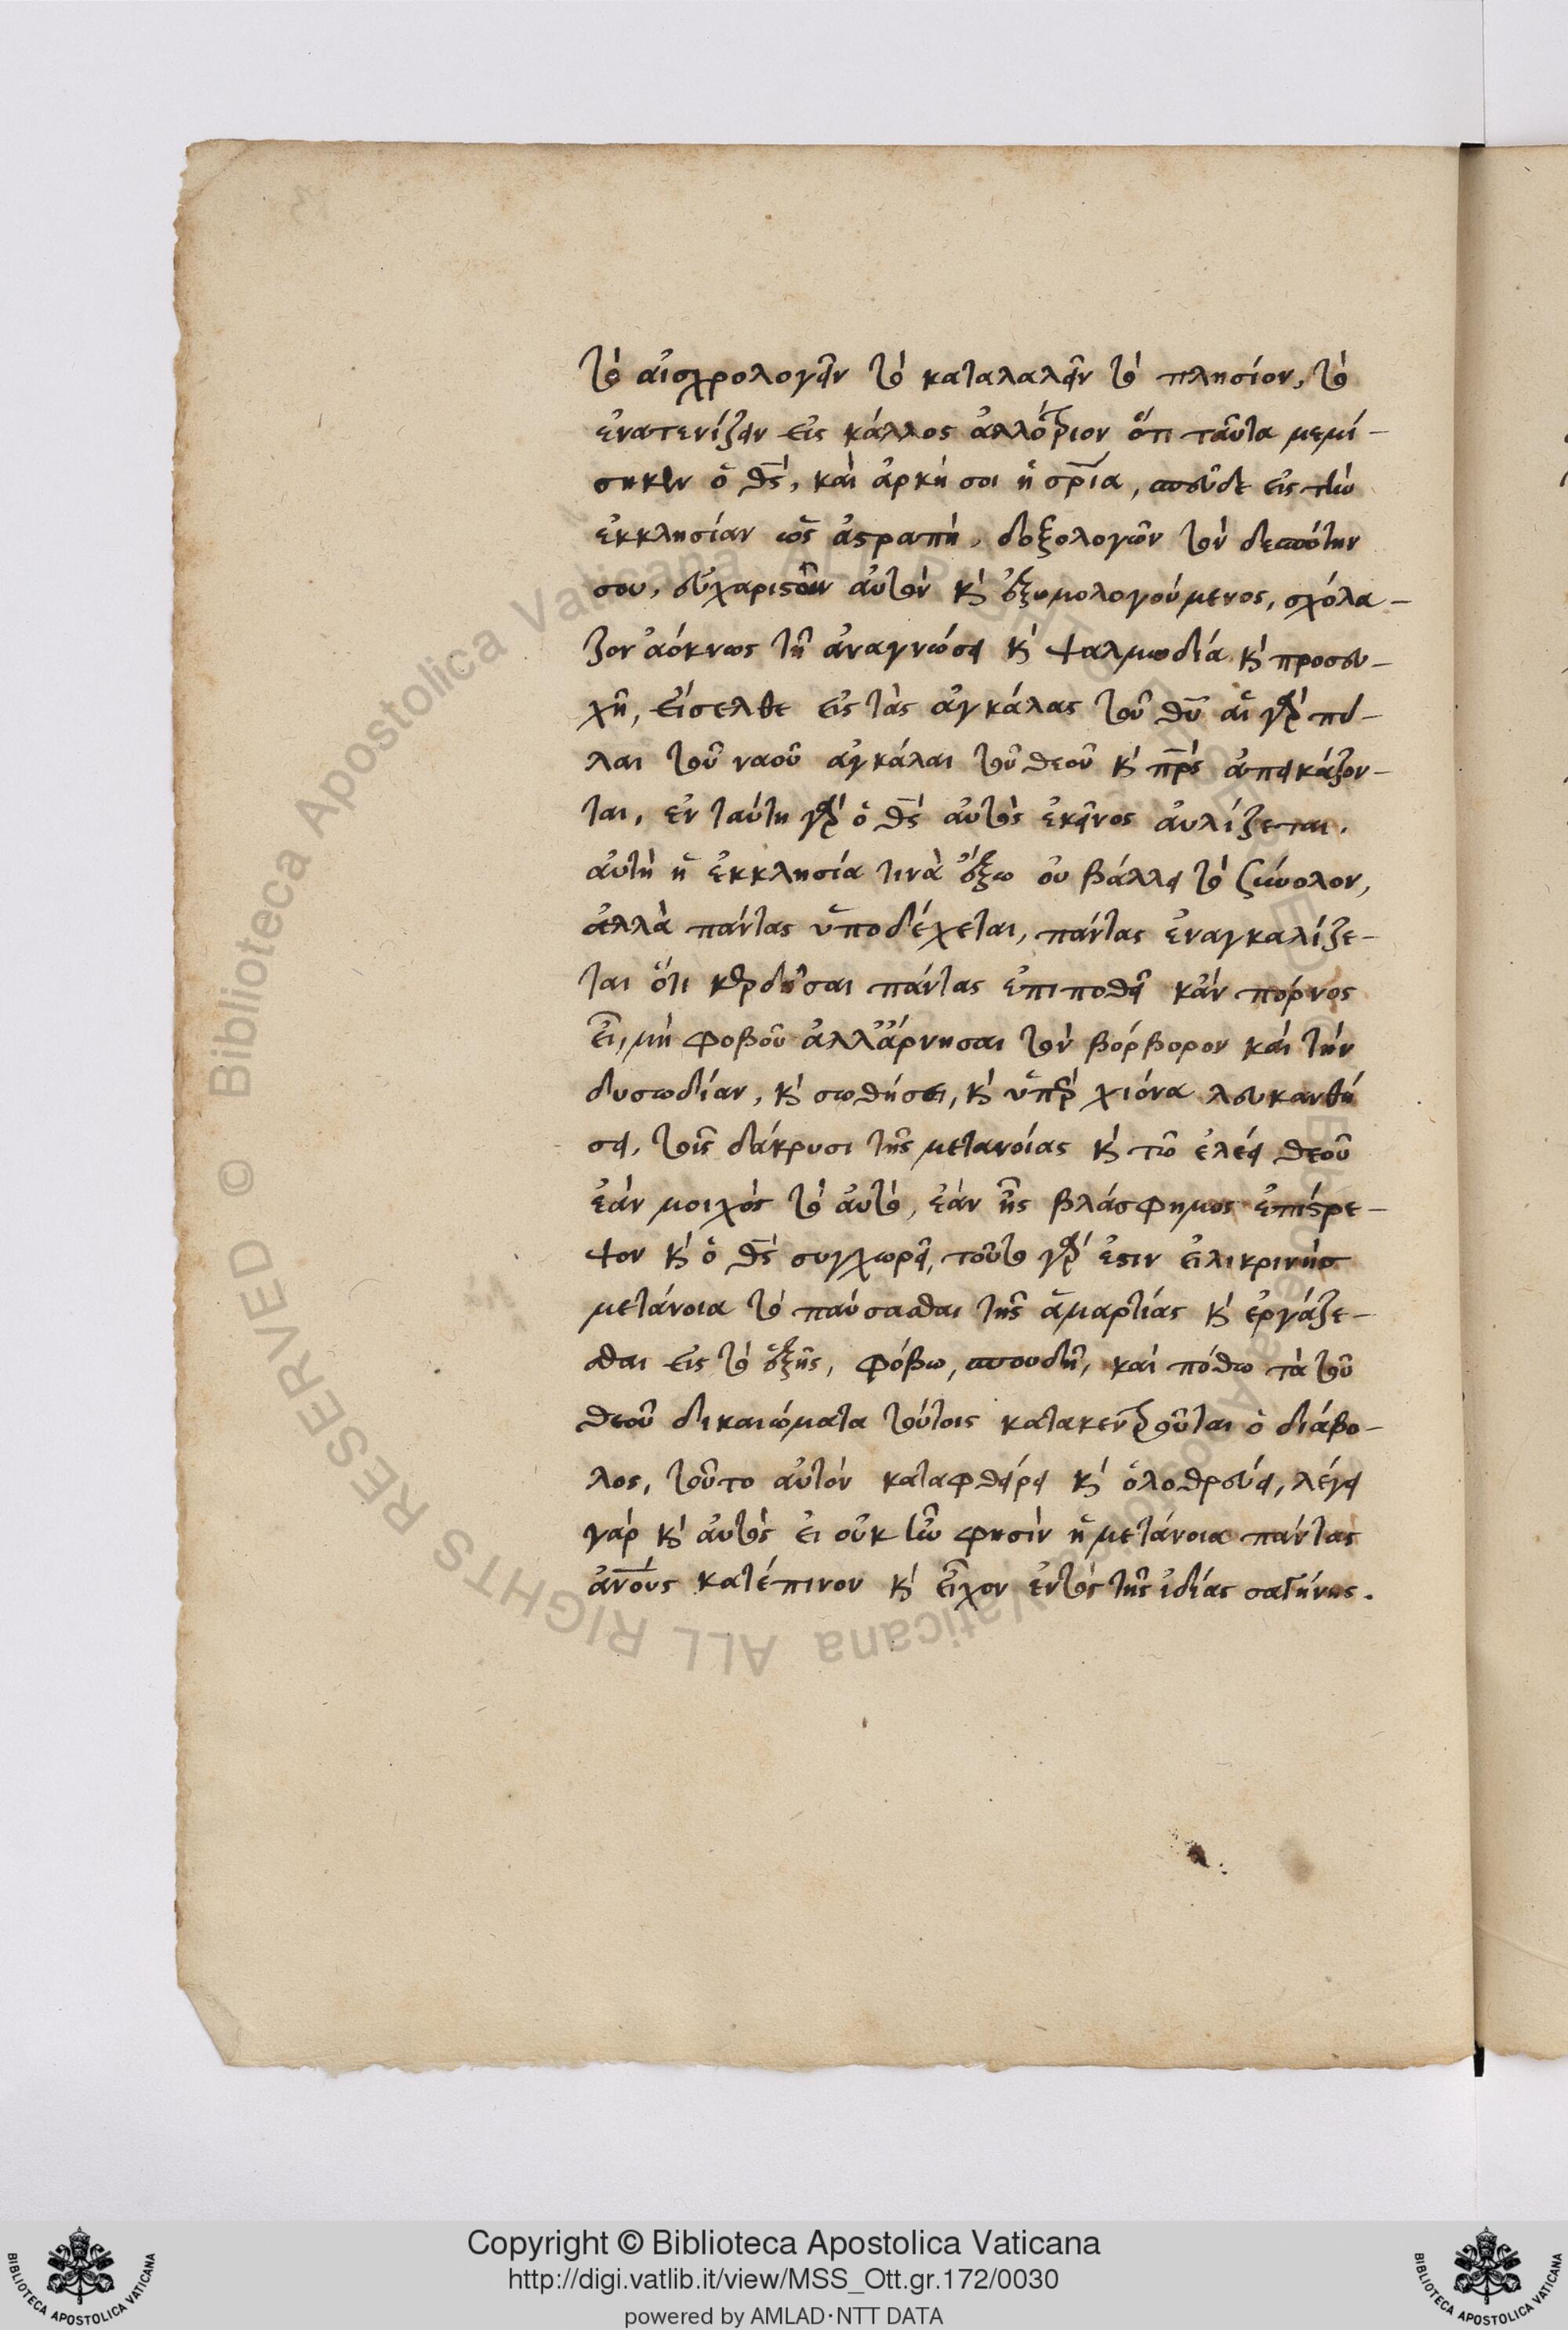 τὸ αἰσχρολογεῖν τὸ καταλαλεῖν τὸ πλησίον, τὸ
ἐνατενίζειν εἰς κάλλος ἀλλότριον ὅτι ταῦτα μεμί-
σηκεν ὁ θς, καὶ ἀρκῇ σοι ἡ σρία, σπεῦδε εἰς τὴν
ἐκκλησίαν ὡς ἀστραπὴ, δοξολογῶν τὸν δεσπότην
σου, εὐχαριστῶν αὐτὸν κ̀ ἐξομολογούμενος, σχόλα-
ζον ἀόκνως τῇ ἀναγνώσει κ̀ ψαλμωδία κ̀ προσευ-
χῇ, εἴσελθε εἰς τὰς ἀγκάλας τοῦ θυ αἱ γὰρ πύ-
λαι τοῦ ναοῦ ἀγκάλαι τοῦ θεοῦ κ̀ πρς ἀπεικάζον-
ται, ἐν ταύτη γὰρ ὁ θς αὐτὸς ἐκεῖνος αὐλίζεται.
αὐτὴ ἡ ἐκκλησία τινὰ ἔξω οὐ βάλλει τὸ σύνολον,
ἀλλὰ πάντας ὑποδέχεται, πάντας ἐναγκαλίζε-
ται ὅτι κερδῆσαι πάντας ἐπιποθεῖ κἂν πόρνος
εἶ, μὴ φοβοῦ ἀλλἄρνησαι τὸν βόρβορον καὶ τὴν
δυσωδίαν, κ̀ σωθήσει, κ̀ ὑπὲρ χιόνα λευκανθή
σει, τοῖς δάκρυσι τῆς μετανοίας κ̀ τῶ ἐλέει θεοῦ
ἐὰν μοιχὸς τὸ αὐτὸ, ἐὰν ἦς βλάσφημος ἐπίστρε-
ψον κ̀ ὁ θς συγχωρεῖ, τοῦτο γὰρ ἐστιν εἰλικρινὴς
μετάνοια τὸ παύσασθαι τῆς ἁμαρτίας κ̀ ἐργάζε-
σθαι εἰς τὸ ἑξῆς, φόβω, σπουδῇ, καὶ πόθω τὰ τοῦ
θεοῦ δικαιώματα τούτοις κατακεντροῦται ὁ διάβο-
λος, τοῦτο αὐτὸν καταφθείρει κ̀ ὁλοθρεύει, λέγει
γάρ κ̀ αὐτὸς εἰ οὐκ ἦν φησὶν ἡ μετάνοια πάντας
ἀνους κατέπινον κ̀ εἶχον ἐντὸς τῆς ἰδίας σαγήνης.
Copyright © Biblioteca Apostolica Vaticana
http://digi.vatlib.it/view/MSS_Ott.gr.172/0030
powered by AMLAD·NTT DATA